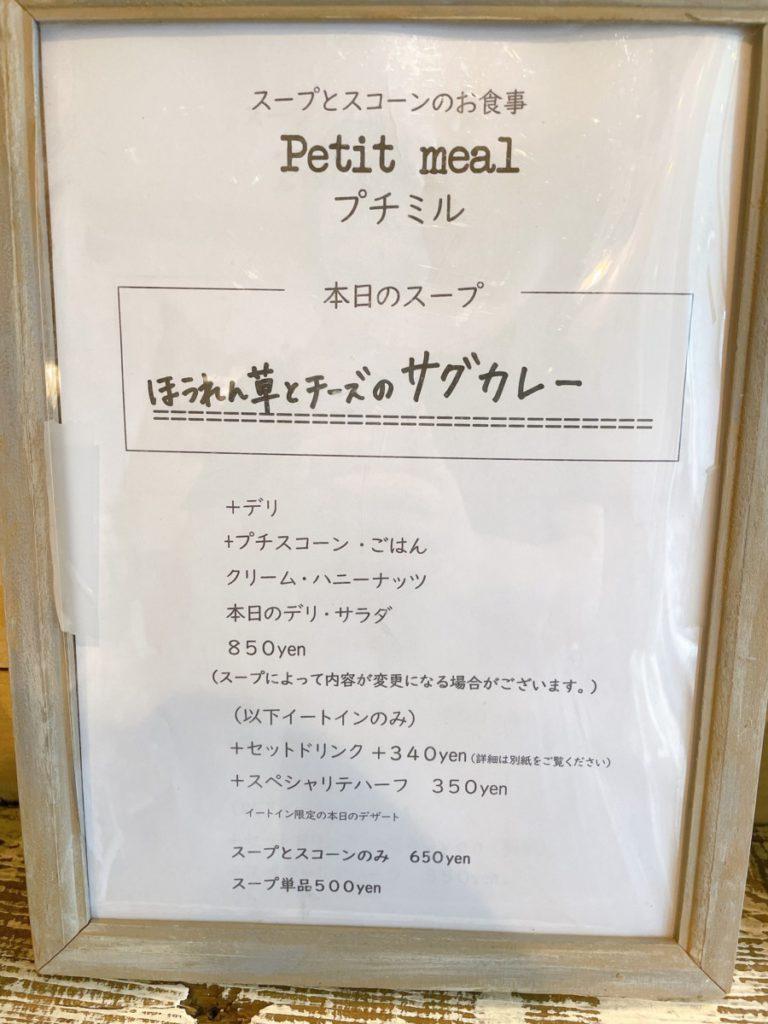 スープとスコーンのお食事
Petit meal
プチミル
本日のスープ
ほうれん草とチーズのサグカレー
＋デリ
+プチスコーン・ごはん
クリーム・ハニーナッツ
本日のデリ・サラダ
８５０yen
（スープによって内容が変更になる場合がございます。）
（以下イートインのみ）
＋セットドリンク ＋３４０yen（詳細は別紙をご覧ください）
＋スペシャリテハーフ　３５０yen
イートイン限定の本日のデザート
スープとスコーンのみ　６５０yen
スープ単品５００yen